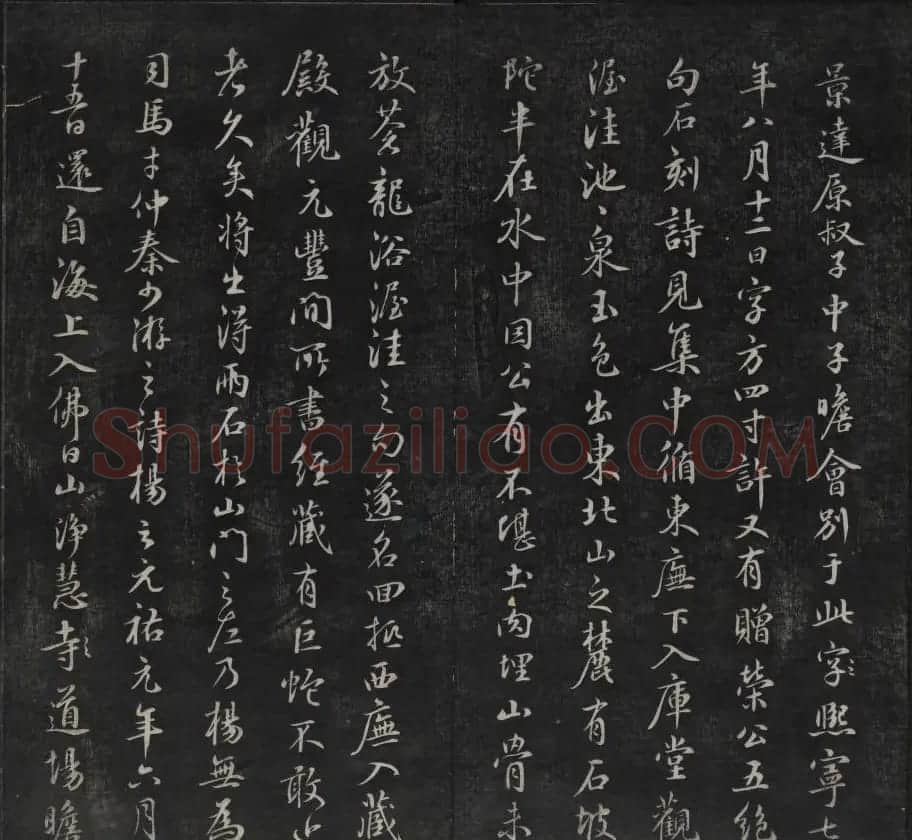 景達原叔子中子瞻會別于此寺熙寧七
年八月十二日字方四寸許又有贈榮公五絶
句石刻詩見集中循東廡下入庫堂觀
渥洼池〻泉玉色出東北山之麓有石坡
陀半在水中因公有不堪土肉埋山骨未
放蒼龍浴渥洼之句遂名回抵西廡入藏
殿觀元豐間所書經藏有巨蛇不敢出
者久矣將出得兩石於山門之左乃楊無為
司馬才仲秦少游之詩楊云元祐元年六月
十五日還自海上入佛日山淨慧寺道場瞻
Shufaziliao.COM